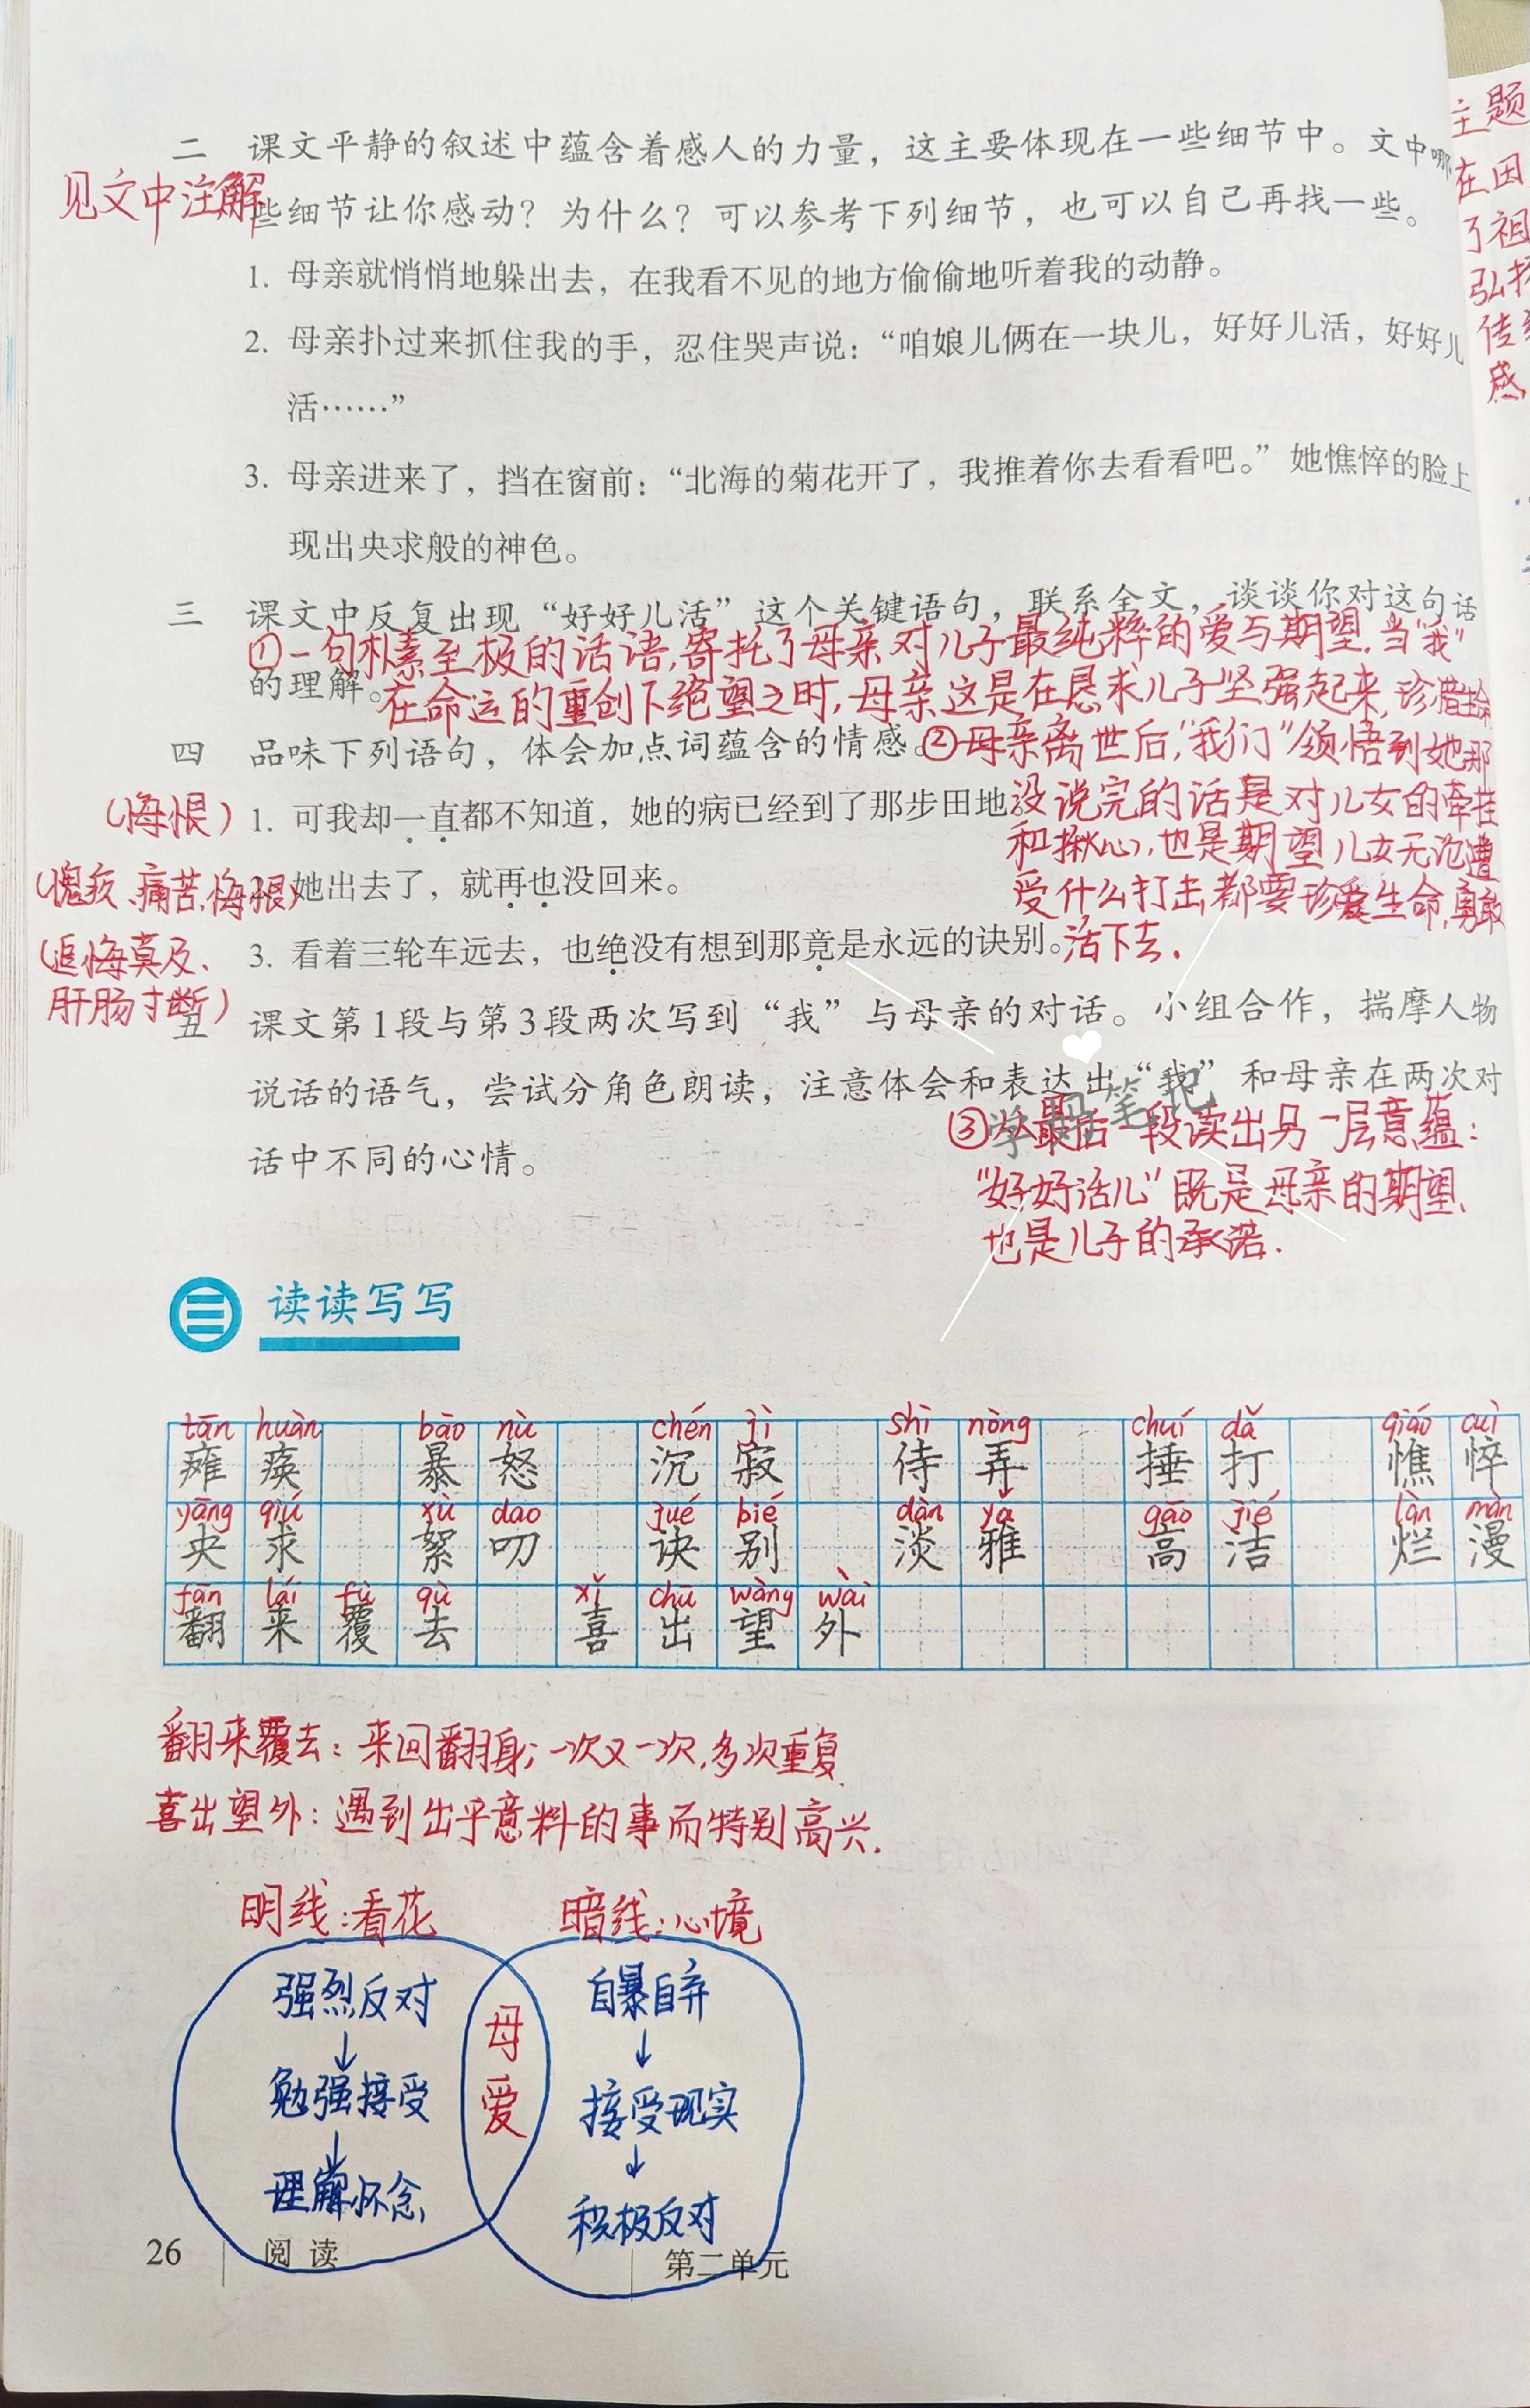 二 课文平静的叙述中蕴含着感人的力量，这主要体现在一些细节中。文中哪
见文中注解
些细节让你感动？为什么？可以参考下列细节，也可以自己再找一些。
1. 母亲就悄悄地躲出去，在我看不见的地方偷偷地听着我的动静。
2. 母亲扑过来抓住我的手，忍住哭声说：“咱娘儿俩在一块儿，好好儿活，好好儿
活……”
3. 母亲进来了，挡在窗前：“北海的菊花开了，我推着你去看看吧。”她憔悴的脸上
现出央求般的神色。
三 课文中反复出现“好好儿活”这个关键语句，联系全文，谈谈你对这句话
的理解。
①一句朴素至极的话语,寄托了母亲对儿子最纯粹的爱与期望.当“我”
在命运的重创下绝望之时,母亲这是在恳求儿子坚强起来,珍惜生命
四 品味下列语句，体会加点词蕴含的情感。
②母亲离世后,“我们”领悟到她那
没说完的话是对儿女的牵挂
和揪心,也是期望儿女无论遭
受什么打击,都要珍爱生命,勇敢
活下去.
(悔恨)
1. 可我却一直都不知道，她的病已经到了那步田地。
(愧疚、痛苦、悔恨)
2. 她出去了，就再也没回来。
(追悔莫及、
肝肠寸断)
3. 看着三轮车远去，也绝没有想到那竟是永远的诀别。
五 课文第1段与第3段两次写到“我”与母亲的对话。小组合作，揣摩人物
说话的语气，尝试分角色朗读，注意体会和表达出“我”和母亲在两次对
话中不同的心情。
③从最后一段读出另一层意蕴:
“好好活儿”既是母亲的期望、
也是儿子的承诺.
读读写写
tān huàn bào nù chén jì shì nòng chuí dǎ qiáo cuì
瘫痪 暴怒 沉寂 侍弄 捶打 憔悴
yāng qiú xù dao jué bié dàn yǎ gāo jié làn màn
央求 絮叨 诀别 淡雅 高洁 烂漫
fān lái fù qù xǐ chū wàng wài
翻来覆去 喜出望外
翻来覆去：来回翻身；一次又一次,多次重复
喜出望外：遇到出乎意料的事而特别高兴.
明线：看花
暗线：心境
强烈反对
↓
勉强接受
↓
理解怀念
母
爱
自暴自弃
↓
接受现实
↓
积极反对
26 阅读 第二单元
主题
在困
了祖
弘扬
感